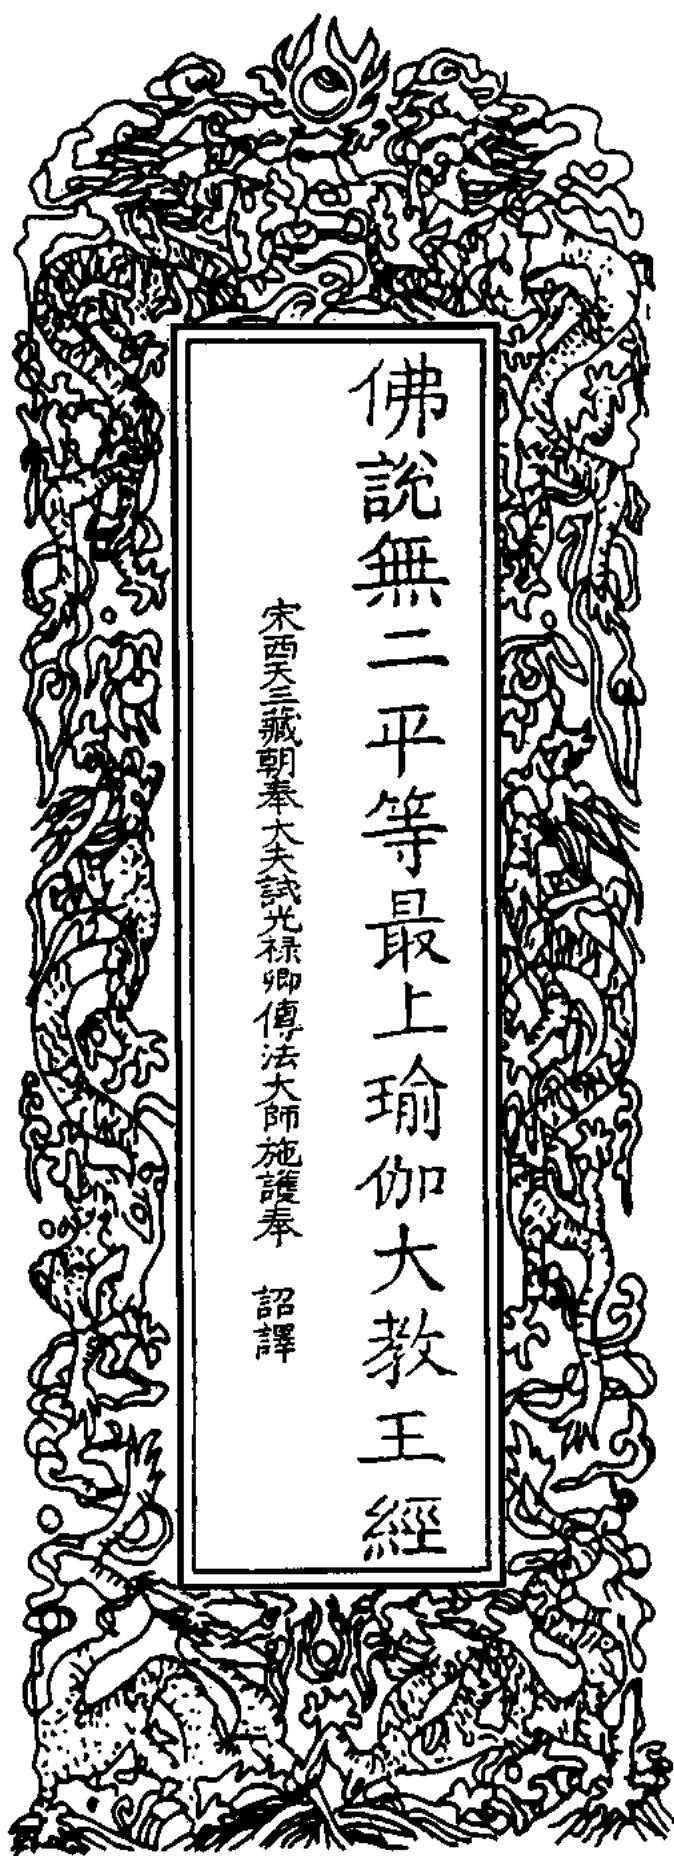 佛說無二平等最上瑜伽大教王經
宋西天三藏朝奉大夫試光祿卿傳法大師施護奉 詔譯